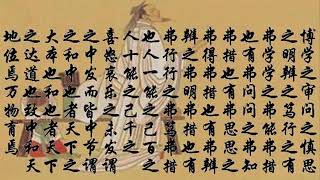 博学之审问之慎思
之明辨之笃行之有
弗学学之弗能弗措
也有弗问问之弗知
弗措也有弗思思之
弗得弗措也有弗辨
辨之弗明弗措也有
弗行行之弗笃弗措
也人一能之己百之
人十能之己千之
喜怒哀乐之未发谓
之中发而皆中节谓
之和中也者天下之
大本也和也者天下
之达道也致中和天
地位焉万物育焉